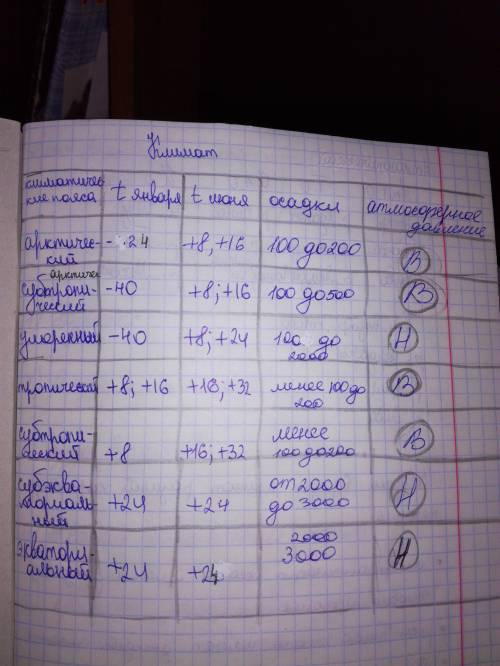 Климат
климатичес-
кие пояса t января t июня осадки атмосферное
давление
арктичес-
кий -24 +8, +16 100 до 200 В
арктичес
субтропи-
ческий -40 +8; +16 100 до 500 В
умеренный -40 +8; +24 100 до
2000 Н
тропический +8; +16 +16; +32 менее 100 до
200 В
субтропи-
ческий +8 +16; +32 менее
100 до 200 В
субэква-
ториаль-
ный +24 +24 от 2000
до 3000 Н
экватори-
альный +24 +24 2000
3000 Н